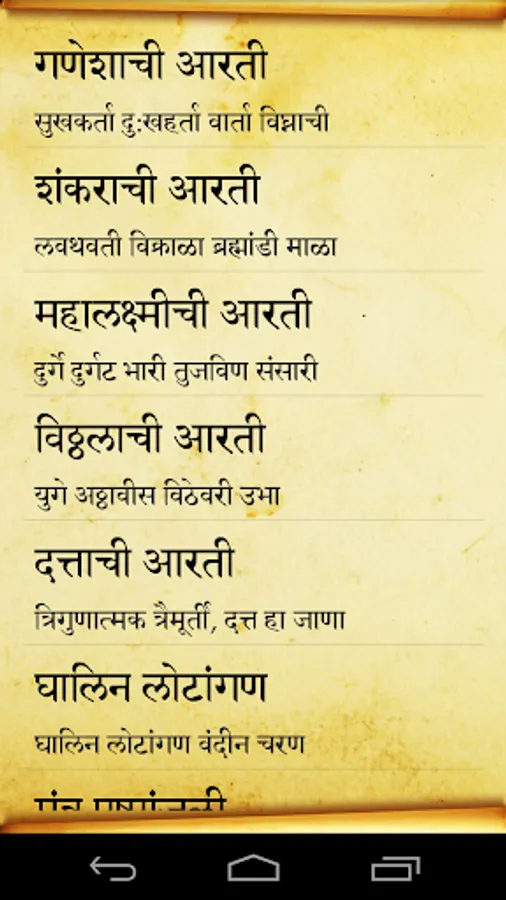 गणेशाची आरती
सुखकर्ता दुःखहर्ता वार्ता विघ्नाची
शंकराची आरती
लवथवती विक्राळा ब्रह्मांडी माळा
महालक्ष्मीची आरती
दुर्गे दुर्गट भारी तुजविण संसारी
विठ्ठलाची आरती
युगे अठ्ठावीस विठेवरी उभा
दत्ताची आरती
त्रिगुणात्मक त्रैमूर्ती, दत्त हा जाणा
घालिन लोटांगण
घालिन लोटांगण वंदीन चरण